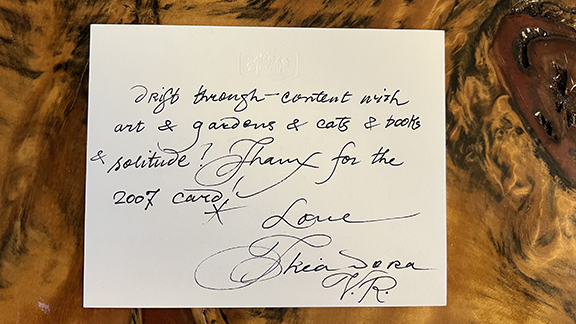 Drift through - content with
art & gardens & cats & books
& solitude! Thanx for the
2007 card!
Love
Theadora
V.R.